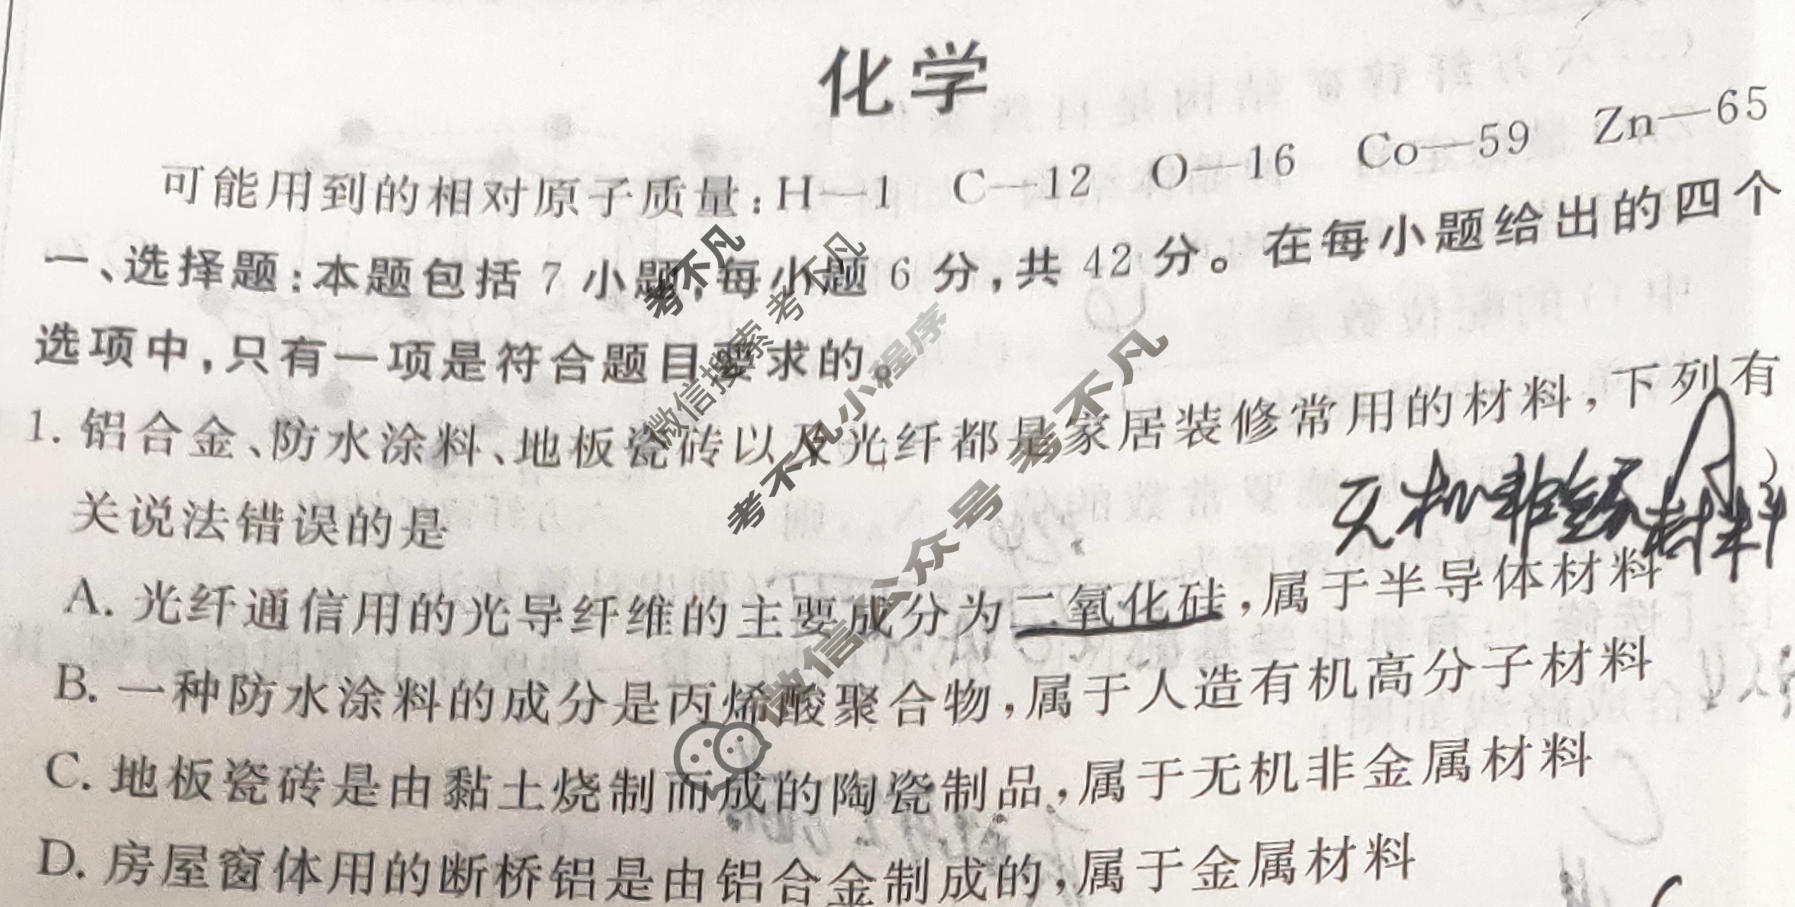 化学
可能用到的相对原子质量:H—1 C—12 O—16 Co—59 Zn—65
一、选择题:本题包括 7 小题,每小题 6 分,共 42 分。在每小题给出的四个
选项中,只有一项是符合题目要求的。
1. 铝合金、防水涂料、地板瓷砖以及光纤都是家居装修常用的材料,下列有
关说法错误的是
无机非金属材料
A. 光纤通信用的光导纤维的主要成分为二氧化硅,属于半导体材料
B. 一种防水涂料的成分是丙烯酸聚合物,属于人造有机高分子材料
C. 地板瓷砖是由黏土烧制而成的陶瓷制品,属于无机非金属材料
D. 房屋窗体用的断桥铝是由铝合金制成的,属于金属材料
考不凡
微信搜索 考不凡
考不凡小程序
微信公众号 考不凡